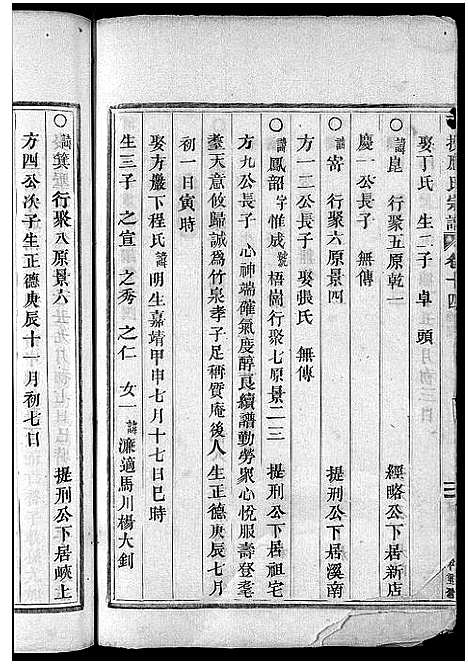 應氏宗譜 卷十四
娶丁氏 生二子 卓 頭
○諱崑 行聚五原乾一 經略公下居新店
慶一公長子 無傳
○諱寄 行聚六原景四 提刑公下居溪南
方一二公長子 娶張氏 無傳
○諱鳳韶 字惟成 號梧崗行聚七原景二三 提刑公下居祖宅
方九公長子 心神端確氣度醇良續譜勤勞眾心悅服壽登耄
耋天意攸歸誠為竹泉孝子足稱質庵後人 生正德庚辰七月
初一日寅時
娶方巖下程氏諱明生嘉靖甲申七月十七日巳時
生三子 之宣 之秀 之仁 女一諱濂適馬川楊大釗
○諱 行聚八原景六 提刑公下居峽上
方四公次子生正德庚辰十一月初七日